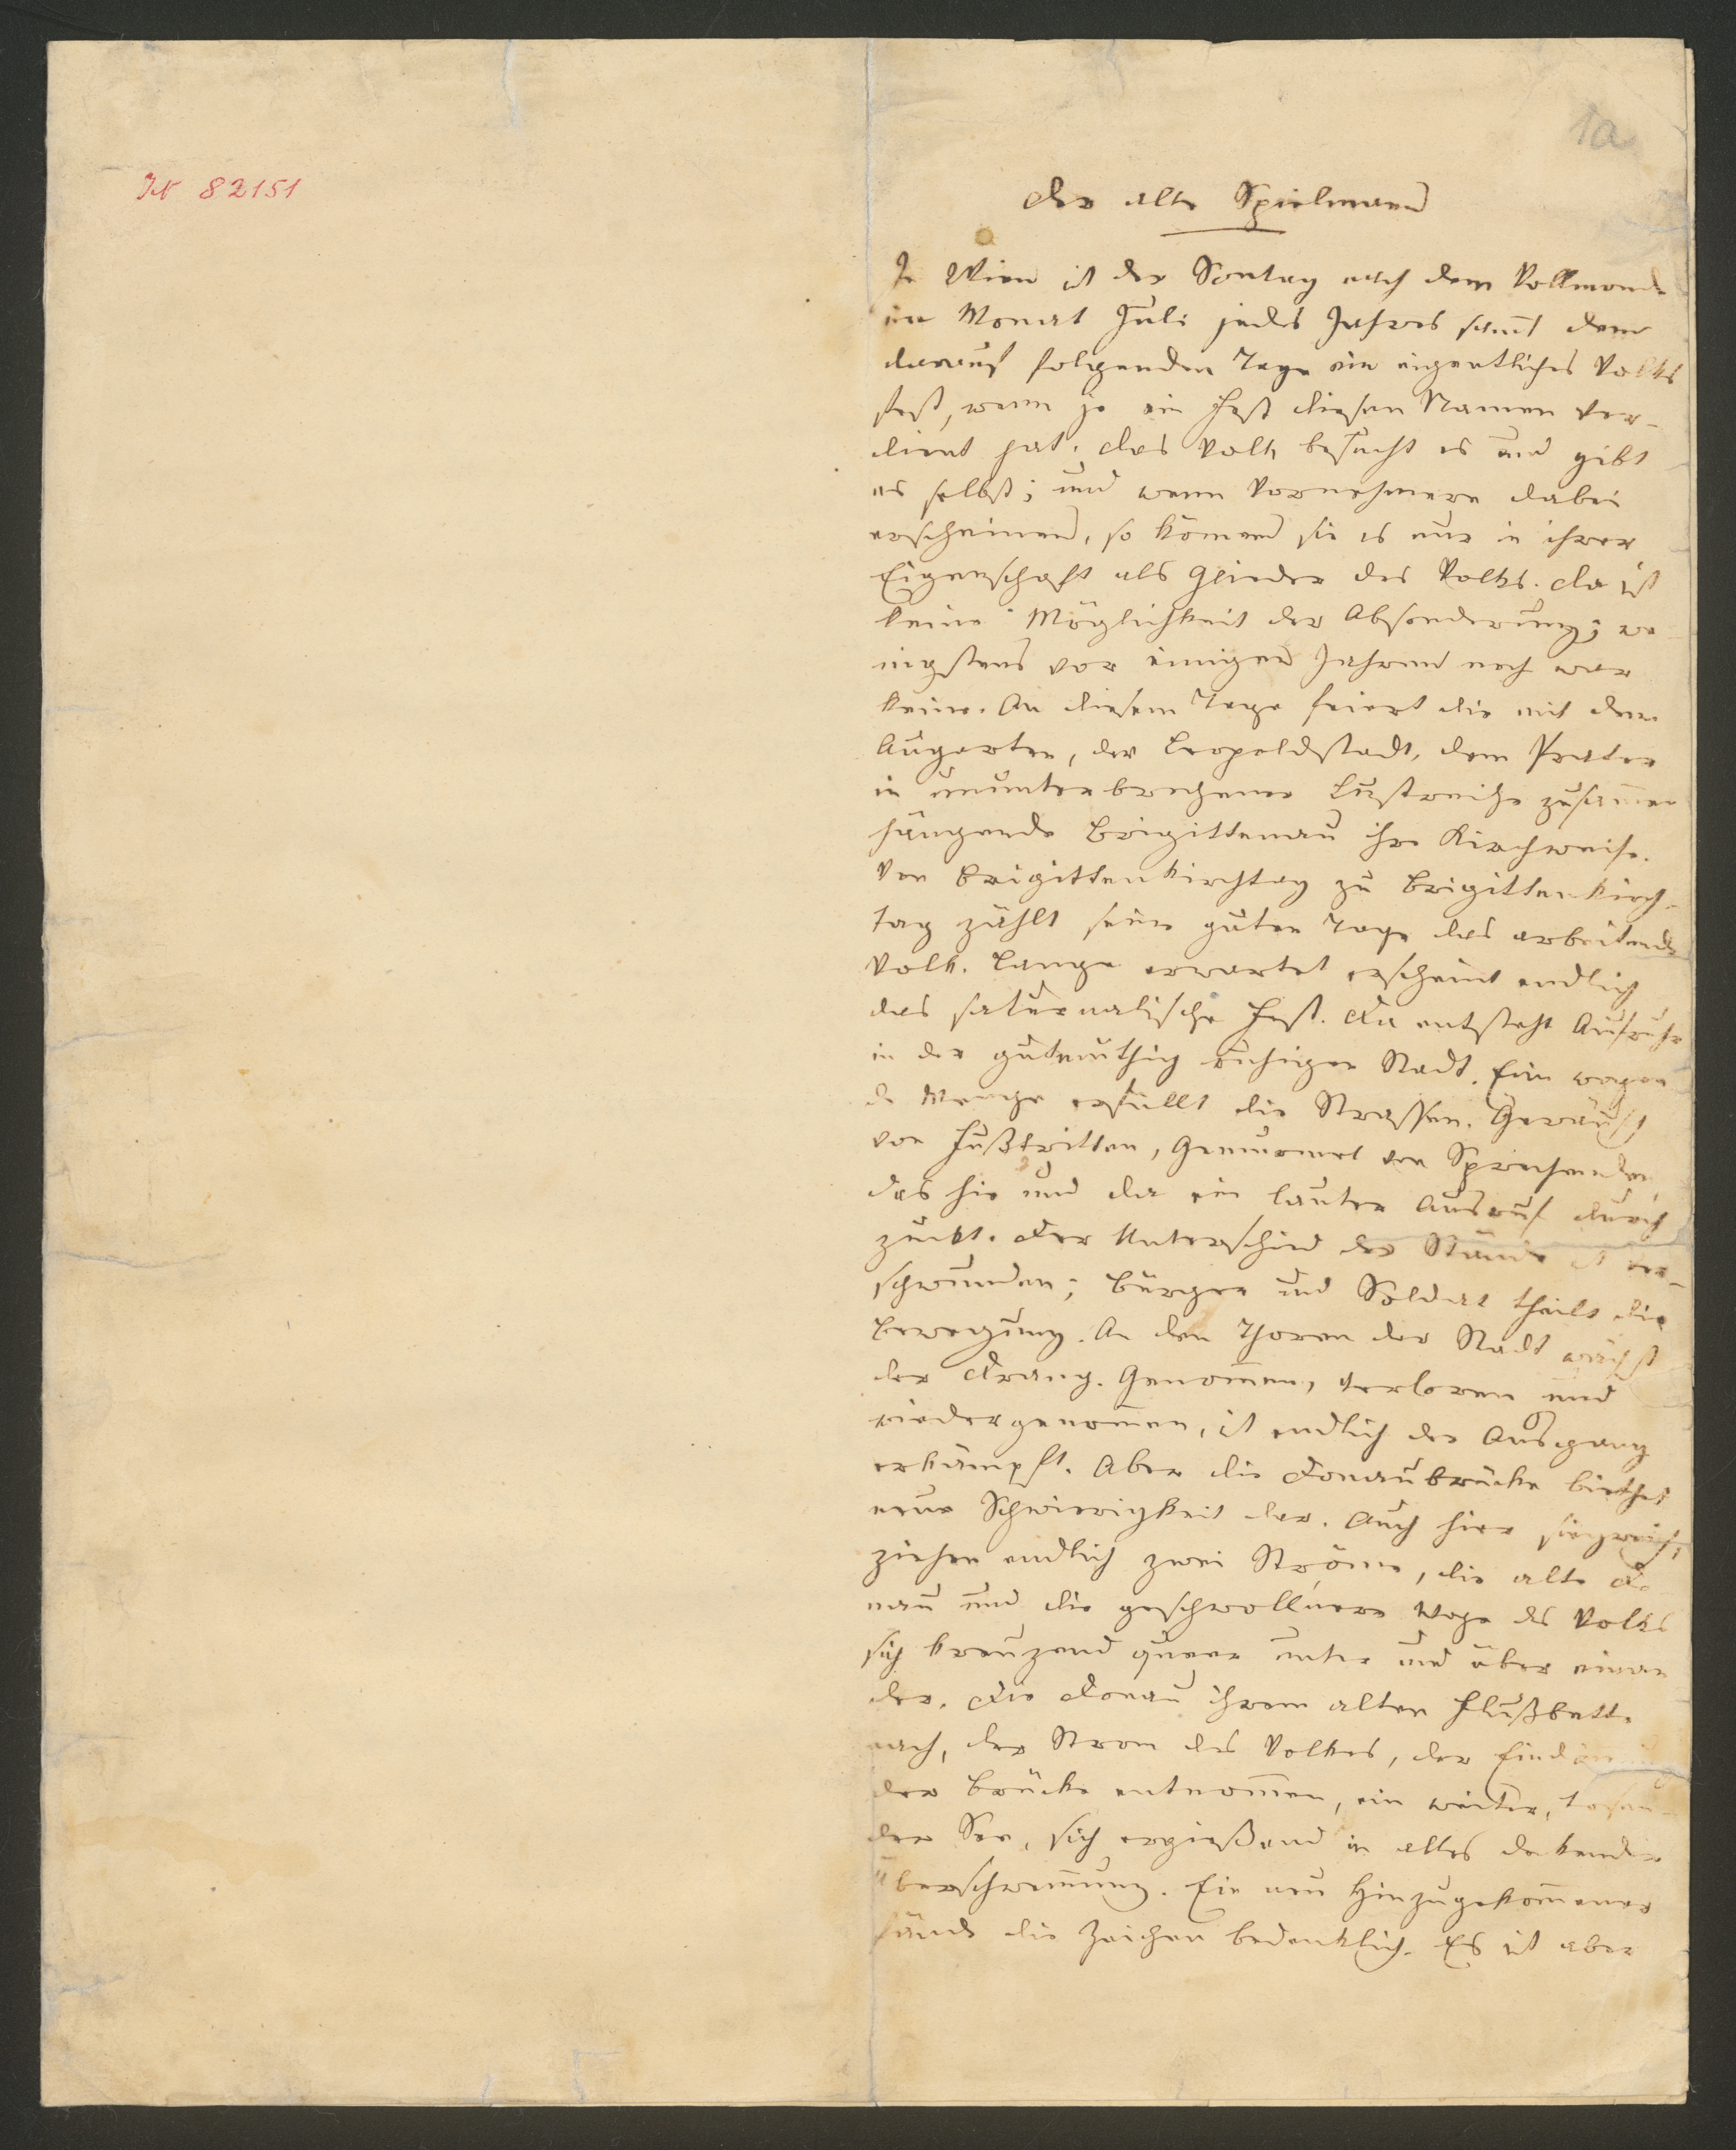 1a
IN 82151
Der alte Spielmann
In Wien ist der Sontag nach dem Vollmonde
im Monat Juli jedes Jahres samt dem
darauf folgenden Tage ein eigentliches Volks
fest, wenn je ein Fest diesen Namen ver-
dient hat. Das Volk besucht es und gibt
es selbst; und wenn Vornehmere dabei
erscheinen, so können sie es nur in ihrer
Eigenschaft als Glieder des Volks. Da ist
keine Möglichkeit der Absonderung; we-
nigstens vor einigen Jahren noch war
keine. An diesem Tage feiert die mit dem
Augarten, der Leopoldstadt, dem Prater
in ununterbrochener Lustreihe zusam̅en
hängende Brigittenau ihre Kirchweihe.
Von Brigittenkirchtag zu Brigittenkirch-
tag zählt seine guten Tage das arbeitende
Volk. Lange erwartet erscheint endlich
das saturnalische Fest. Da entsteht Aufruhr
in der gutmüthig ruhigen Stadt. Eine wogen
de Menge erfüllt die Strassen. Geräusch
von Fußtritten, Gemurmel von Sprechenden,
das hie und da ein lauter Ausruf durch
zuckt. Der Unterschied der Stände ist ver-
schwunden; Bürger und Soldat theilt die
Bewegung. An den Thoren der Stadt wächst
der Drang. Genom̅en, verloren und
wiedergenom̅en, ist endlich der Ausgang
erkämpft. Aber die Donaubrücke biethet
neue Schwierigkeit dar. Auch hier siegreich,
ziehen endlich zwei Ströme, die alte Do
nau und die geschwollnere Woge des Volks
sich kreuzend queer unter und über einan
der. Die Donau ihrem alten Flußbette
nach, der Strom des Volkes, der Eindämmung
der Brücke entnom̅en, ein weiter, tosen-
der See, sich ergießend in alles deckender
Überschwem̅ung. Ein neu Hinzugekom̅ener
fände die Zeichen bedenklich. Es ist aber